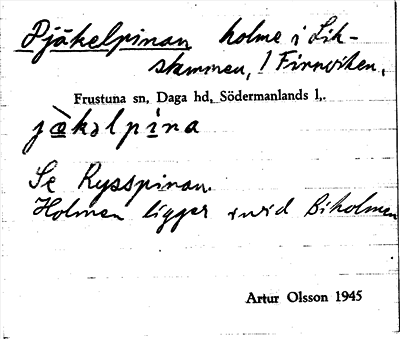 Djäkelpinan holme i Lik-
stammen, I Finnviken,
Frustuna sn, Daga hd, Södermanlands l,.
jæ̀kəlpina
Se Rysspinan.
Holmen ligger invid Biholmen
Artur Olsson 1945